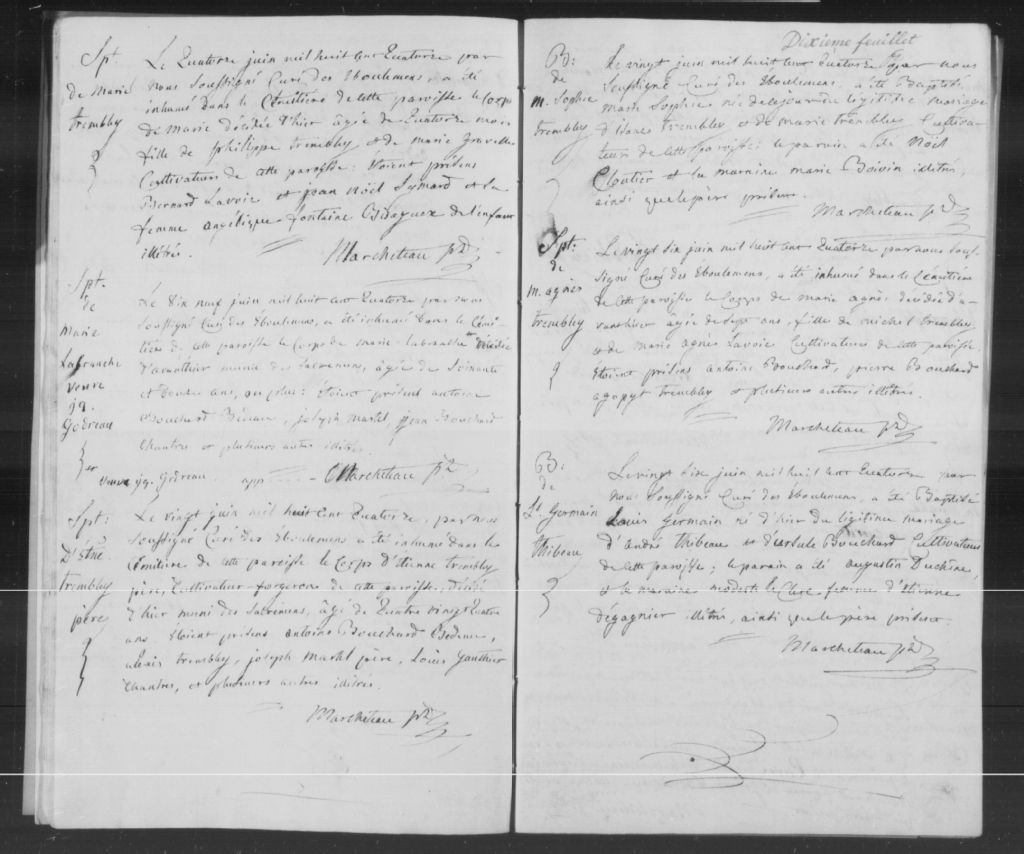 Sp.
de Marie
trembley
Le Quatorze juin mil huit cent Quatorze par
Nous Soussigné Curé des Eboulemens, a été
inhumé dans le Cémitiere de cette paroisse le Corps
de marie décédée d'hier âgée de Quatorze mois
fille de philippe trembley et de marie gravelle
Cultivateurs de cette paroisse: étoient présens
Bernard Lavoie et jean Nöel Symard et sa
femme angélique fontaine de l'enfant
illétrés.
Marcheteau ptr
Spt.
de
Marie
Labranche
veuve
jq.
Godreau
Le Dix neuf juin mil huit cent Quatorze par nous
soussigné Curé des Eboulemens, a été inhumé dans le Cémi-
tiere de cette paroisse le Corps de marie labranche décédée
d'avanthier munie des Sacremens, âgée de Soixante
et douze ans, ou plus: étoient présens antoine
Bouchard Bédeau, joseph martel, jean Bouchard
Chantre et plusieurs autres illétrés.
veuve jq. Godreau. app Marcheteau ptr
Spt:
D'étne
trembley
père
Le vingt juin mil huit cent Quatorze, par nous
soussigné Curé des Eboulemens a été inhumé dans le
Cémitiere de cette paroisse le Corps d'étienne trembley
père, Cultivateur forgeron de cette paroisse, décédé
d'hier muni des Sacremens, âgé de Quatre vingt Quatre
ans. étoient présens antoine Bouchard Bedeau,
alexis trembley, joseph martel père, Louis Gauthier
Chantres, et plusieurs autres illétrés.
Marcheteau ptr
Dixième feuillet
B:
de
m. Sophie
trembley
Le vingt juin mil huit cent Quatorze par nous
Soussigné Curé des Eboulemens a été Baptisée
marie Sophie née de ce jour du légitime mariage
trembley et de marie trembley Cultiva-
teurs de cette paroisse: le parain a été Nöel
Cloutier et la maraine marie Boivin illétrés,
ainsi que le père présens.
Marcheteau ptr
Spt:
de
m. agnès
trembley
Le vingt six juin mil huit cent Quatorze par nous sous-
signé Curé des Eboulemens, a été inhumé dans le Cémitiere
de cette paroisse le Corps de marie agnès décédée d'a-
vanthier âgée de Sept ans, fille de michel trembley
et de marie agnès Lavoie Cultivateurs de cette paroisse.
étoient présens antoine Bouchard, pierre Bouchard
agapyt trembley et plusieurs autres illétrés.
Marcheteau ptr
B:
de
Ls. Germain
thibeau
Le vingt six juin mil huit cent Quatorze par
nous Soussigné Curé des Eboulemens, a été Baptisé
Louis Germain né d'hier du légitime mariage
d'André Thibeau et d'ursule Bouchard Cultivateurs
de cette paroisse; le parain a été augustin Duchêne,
et la maraine modeste le Clerc femme d'étienne
dégagnier illétrés, ainsi que le père présens.
Marcheteau ptr